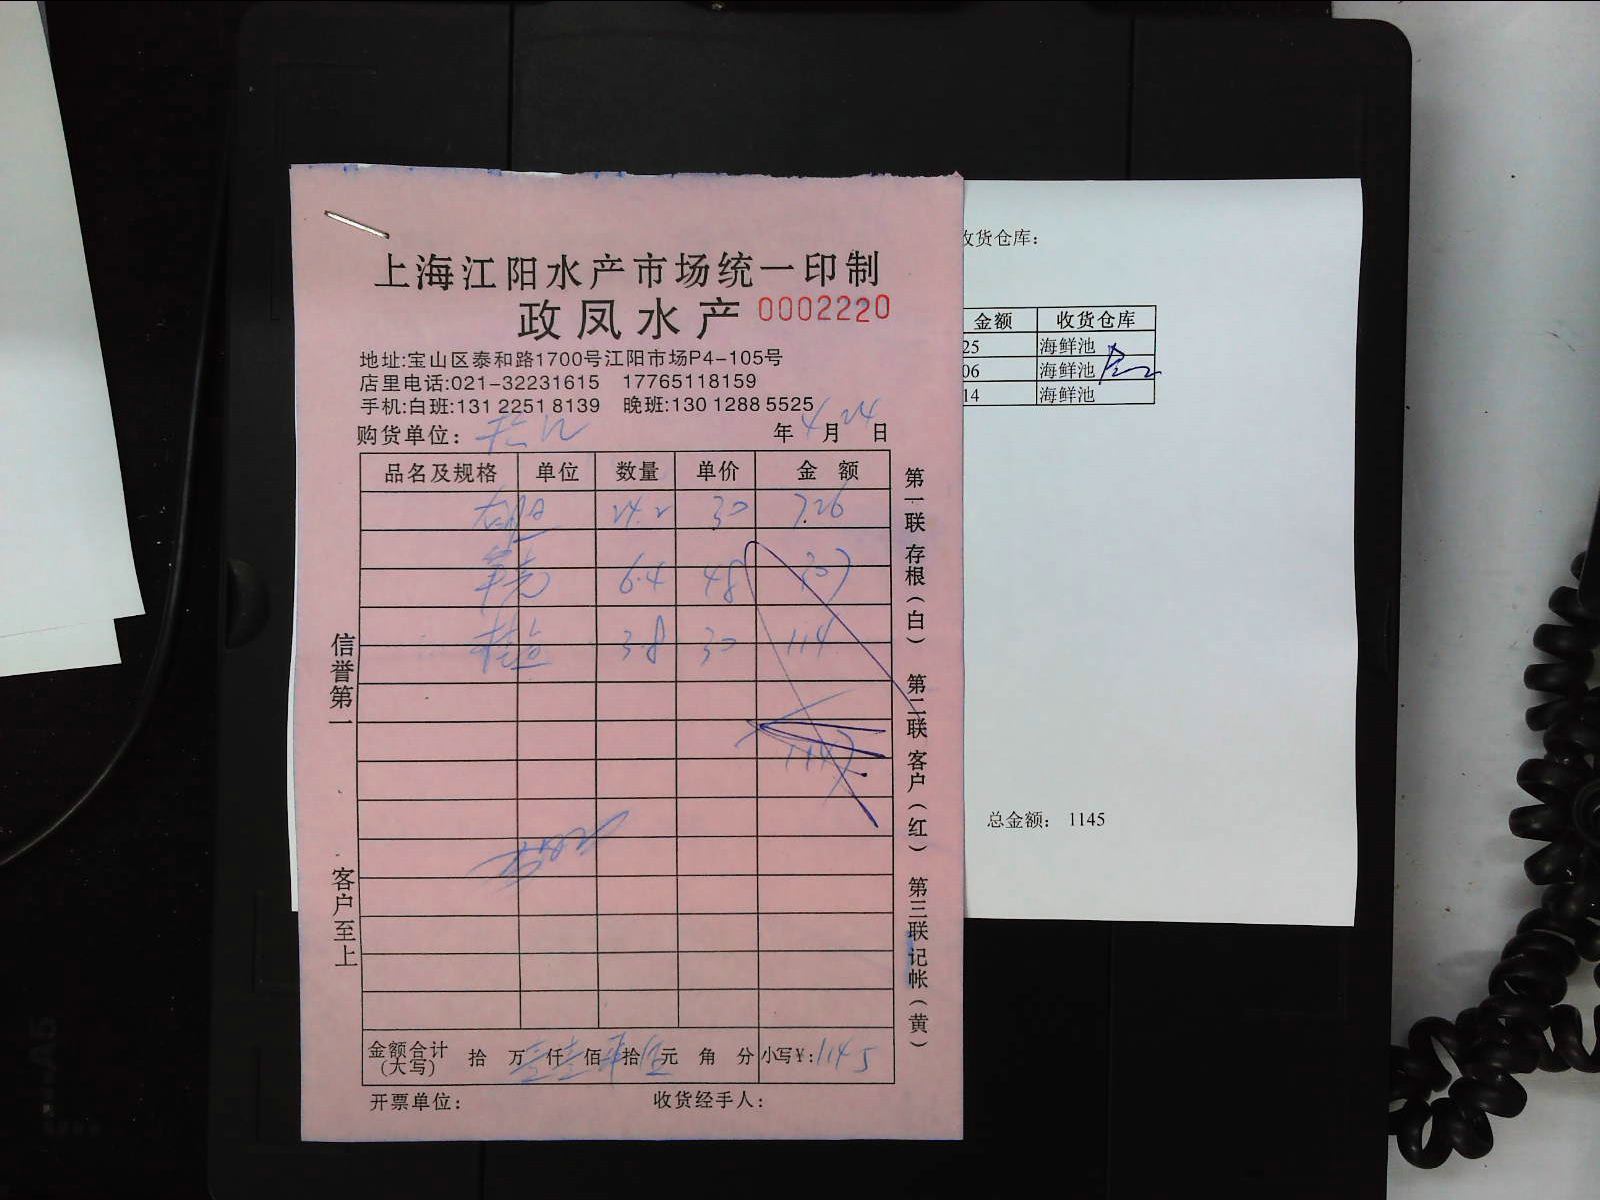 上海江阳水产市场统一印制
政凤水产 0002220
地址:宝山区泰和路1700号江阳市场P4-105号
店里电话:021-32231615 17765118159
手机:白班:131 2251 8139 晚班:130 1288 5525
购货单位: 年 4 月 24 日
品名及规格 单位 数量 单价 金额
24.2 30 726
6.4 48 307
桂鱼 3.8 30 114
1147
金额合计(大写) 拾 万 壹 仟 壹 佰 肆 拾 伍 元 角 分 小写¥:1145
开票单位: 收货经手人:
信誉第一 客户至上
第一联 存根(白) 第二联 客户(红) 第三联 记帐(黄)
收货仓库:
金额 收货仓库
25 海鲜池
06 海鲜池
14 海鲜池
总金额: 1145
A5